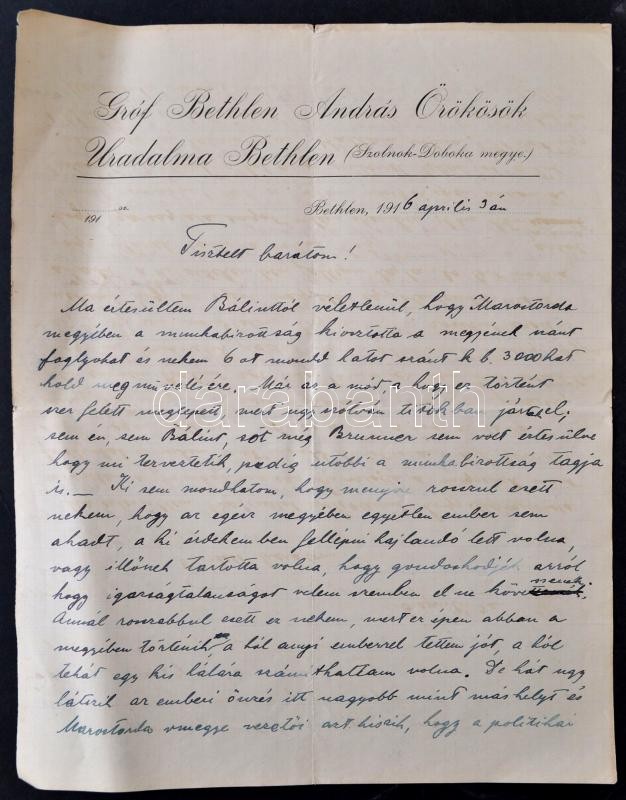 Gróf Bethlen András Örökösök
Uradalma Bethlen (Szolnok-Doboka megye.)
191
sz.
Bethlen, 1916 április 3 án
Tisztelt barátom!
Ma értesültem Bálinttól véletlenül, hogy Marostorda
megyében a munkabizottság kiosztotta a megyének szánt
foglyokat és nekem 6 ot mondd hatot szánt k b. 3000 kat
hold megmivelésére. Már az a mód a hogy ez történt
felett meglepett, mert ugyszólván titokban járt el;
sem én, sem Bálint, sőt még Brunner sem volt értesülve
hogy mi terveztetik, pedig utóbbi a munkabizottság tagja
is. — Ki sem mondhatom, hogy menyire rosszul esett
nekem, hogy az egész megyében egyetlen ember sem
akadt, a ki érdekemben fellépni hajlandó lett volna,
vagy illőnek tartotta volna, hogy gondoskodják arról
hogy igazságtalanságot velem szemben el ne kövessenek.
Annál rosszabbul esett ez nekem, mert ez épen abban a
megyében történik, a hól anyi emberrel tettem jót, a hól
tehát egy kis hálára számithattam volna. De hát ugy
látszik az emberi önzés itt nagyobb mint máshelyt és
Marostorda vmegye vezetői azt hiszik, hogy a politikai
darabanth